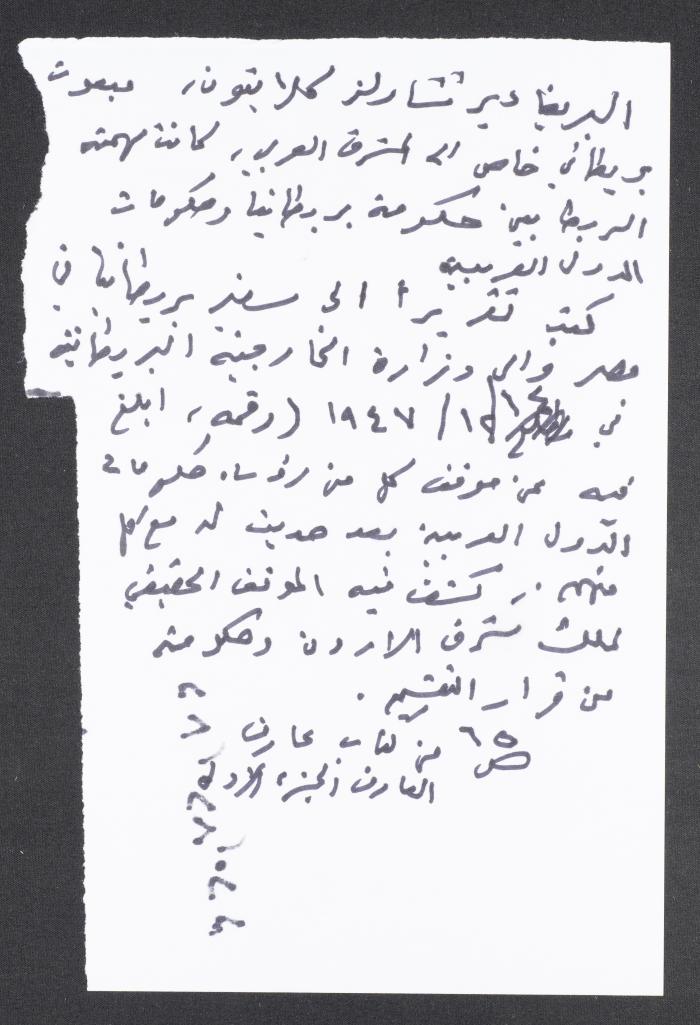 البريغادير تشارلز كلايتون، مبعوث
بريطاني خاص الى المشرق العربي، كانت مهمته
الربط بين حكومة بريطانيا وحكومات
الدول العربية
كتب تقريراً الى سفير بريطانيا في
مصر والى وزارة الخارجية البريطانية
في ١٩٤٧/١٢/ (رقمه، ابلغ
فيه عن موقف كل من رؤساء حكومات
الدول العربية بعد حديث له مع كل
منهم .. كشف فيه الموقف الحقيقي
لملك شرق الاردن وحكومته
من قرار التقسيم .
ص ٦٥ من كتاب عارف
العارف الجزء الاول